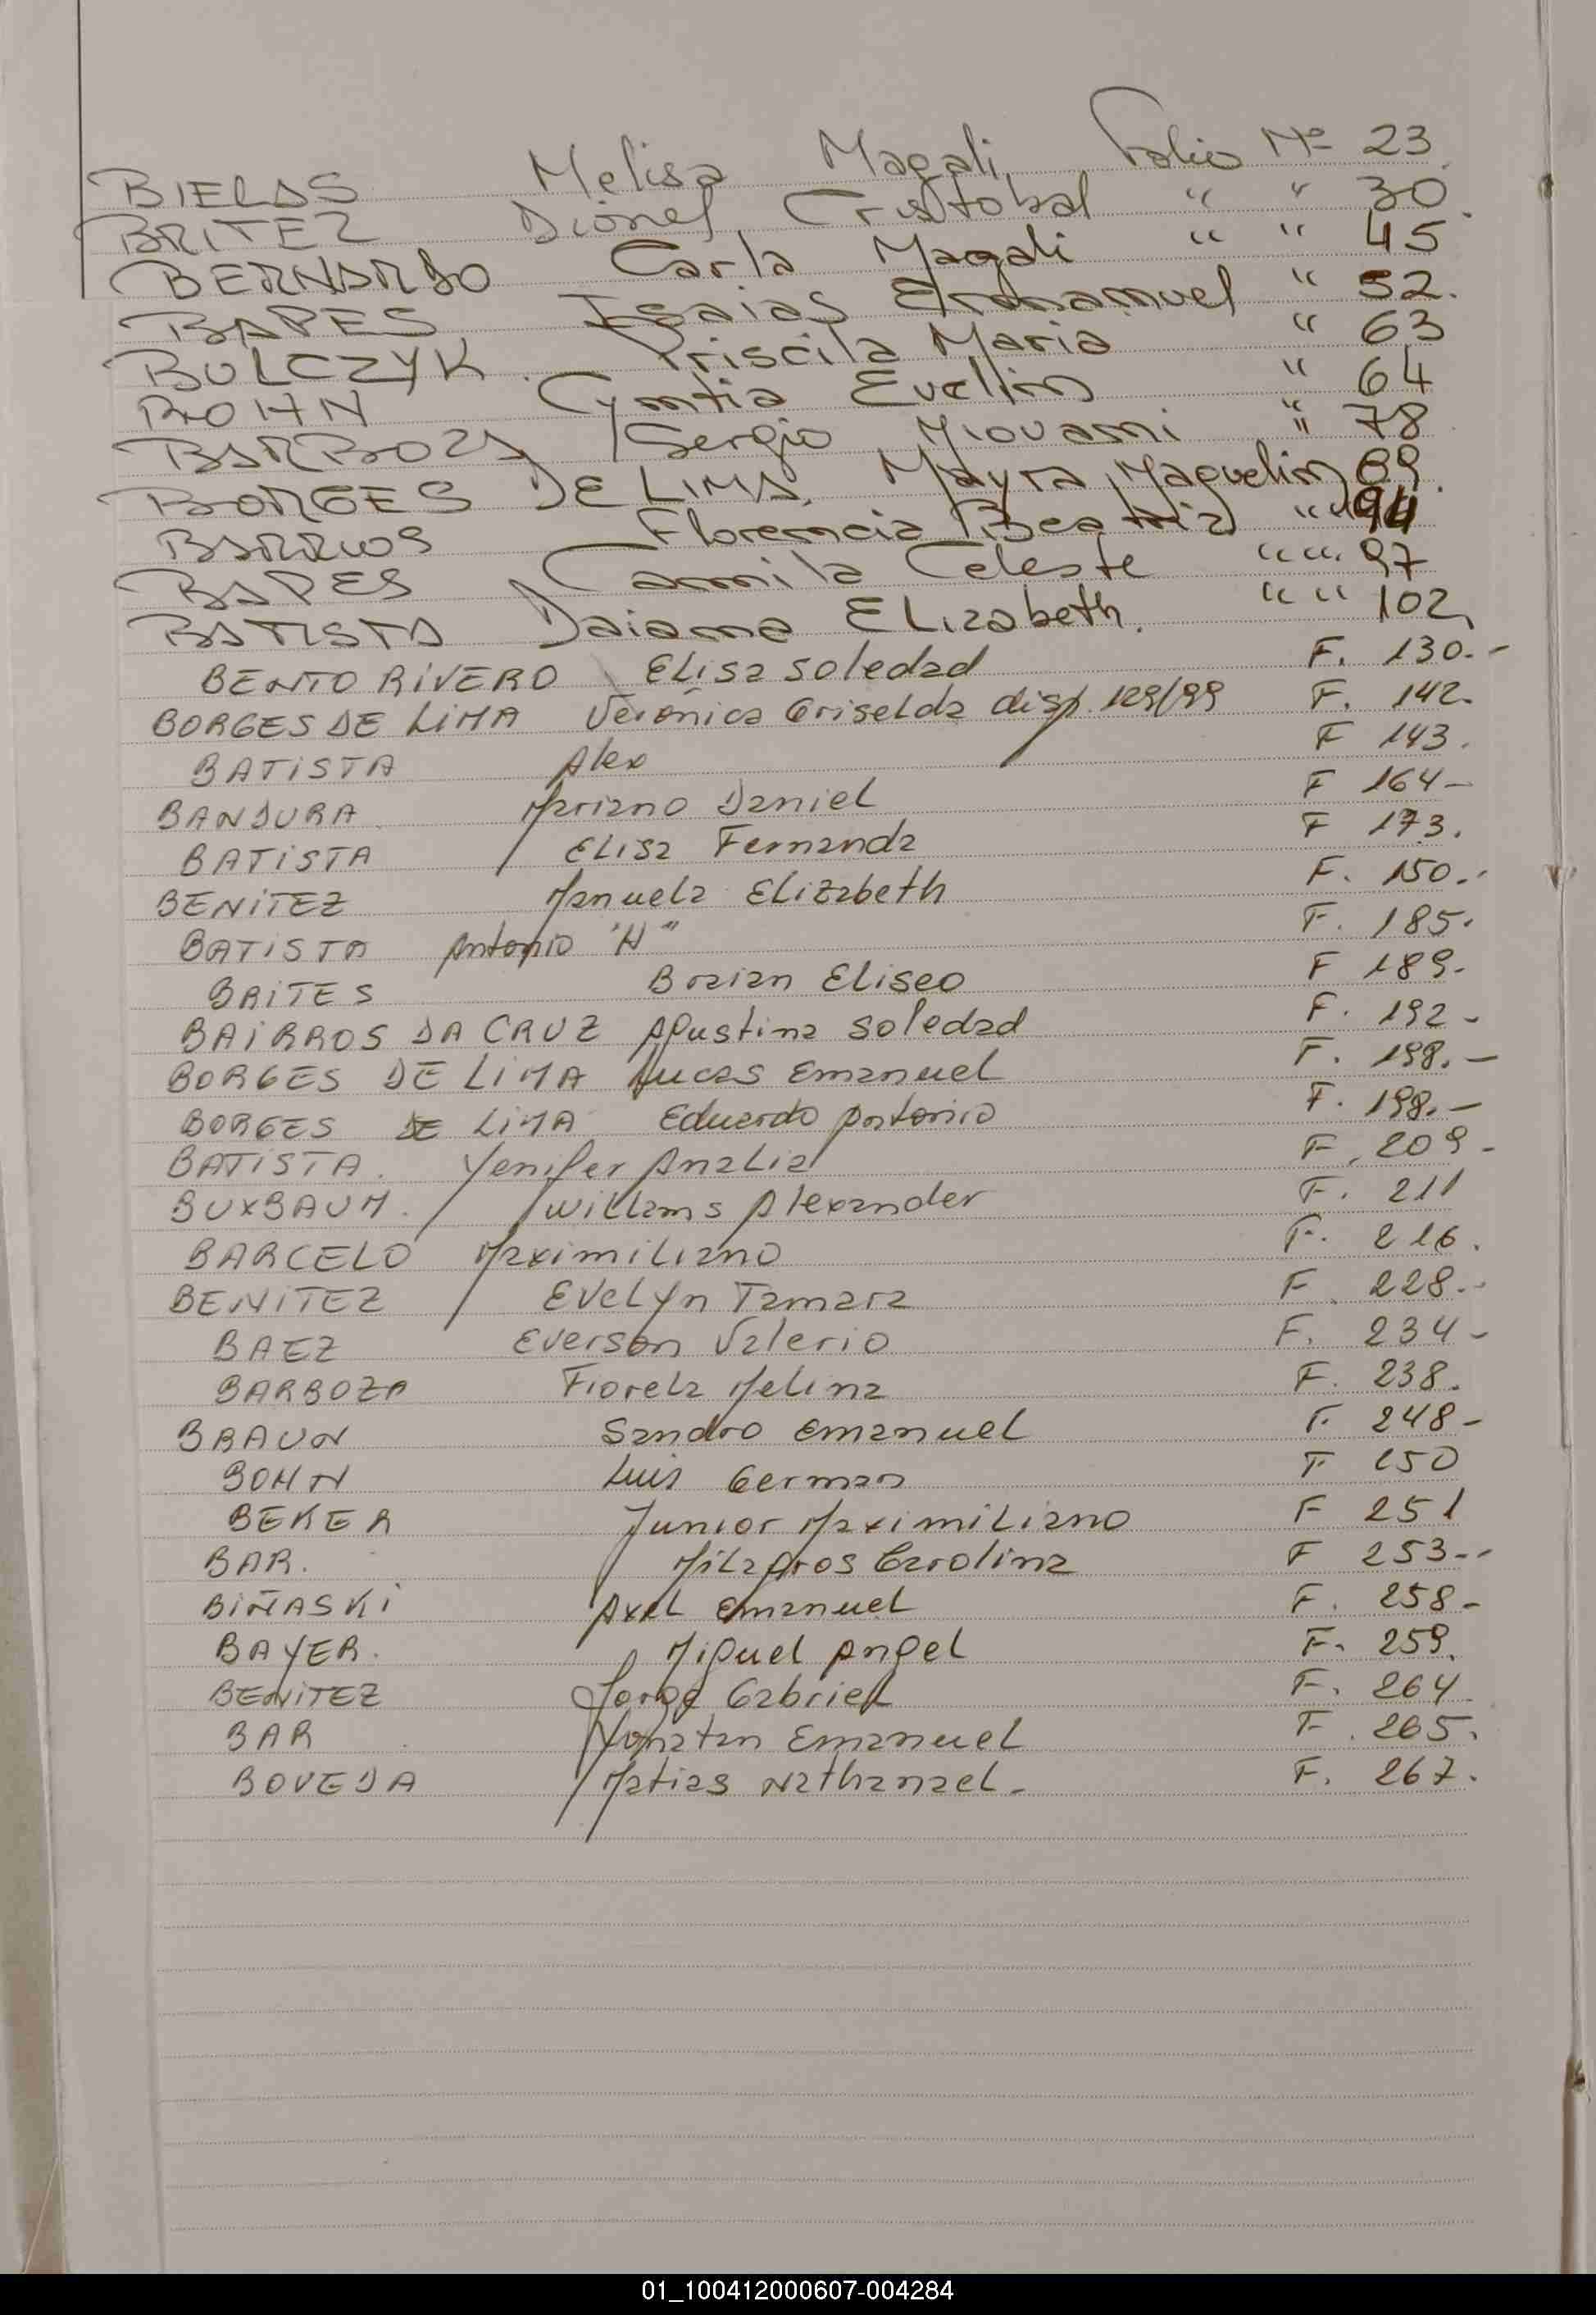 BIELAS Melisa Magali Folio Nº 23
BRITEZ Dionel Cristobal " " 30
BERNARDO Carla Magali " " 45
BAPES Isaias Emmanuel " 52.
BULCZYK Priscila Maria " 63
BOHN Cyntia Evellin " 64
BARBOZA Sergio Giovani " 78
BORGES DE LIMA Mayra Maguelin 89
BARRIOS Florencia Beatriz " " 94
BAPES Camila Celeste " " 97
BATISTA Daiana ELizabeth. " " 102
BENTO RIVERO ELisa Soledad F. 130.-
BORGES DE LIMA Verónica Griselda disp. 129/99 F. 142.
BATISTA Alex F 143.
BANDURA Mariano Daniel F 164-
BATISTA ELisa Fernanda F 173.
BENITEZ Manuela Elizabeth F. 150.-
BATISTA Antonio "H" F. 185.
BRITES Braian Eliseo F 189.
BAIRROS DA CRUZ Agustina Soledad F. 192-
BORGES DE LIMA Lucas Emanuel F. 198.-
BORGES DE LIMA Eduardo Antonio F. 198.-
BATISTA. Yenifer Analia F. 209-
BUXBAUM. Willams Alexander F. 211
BARCELO Maximiliano F. 216.
BENITEZ Evelyn Tamara F. 228.-
BAEZ Everson Valerio F. 234-
BARBOZA Fiorela Melina F. 238.
BRAUN Sandro Emanuel F 248-
BOHN Luis German F 250
BEKER Junior Maximiliano F 251
BAR. Milagros Carolina F 253--
BIÑASKI Axel Emanuel F. 258-
BAYER. Miguel Angel F. 259.
BENITEZ Jorge Gabriel F. 264
BAR Yonatan Emanuel F. 265.
BOVEDA Matias Nathanael. F. 267.
01_100412000607-004284